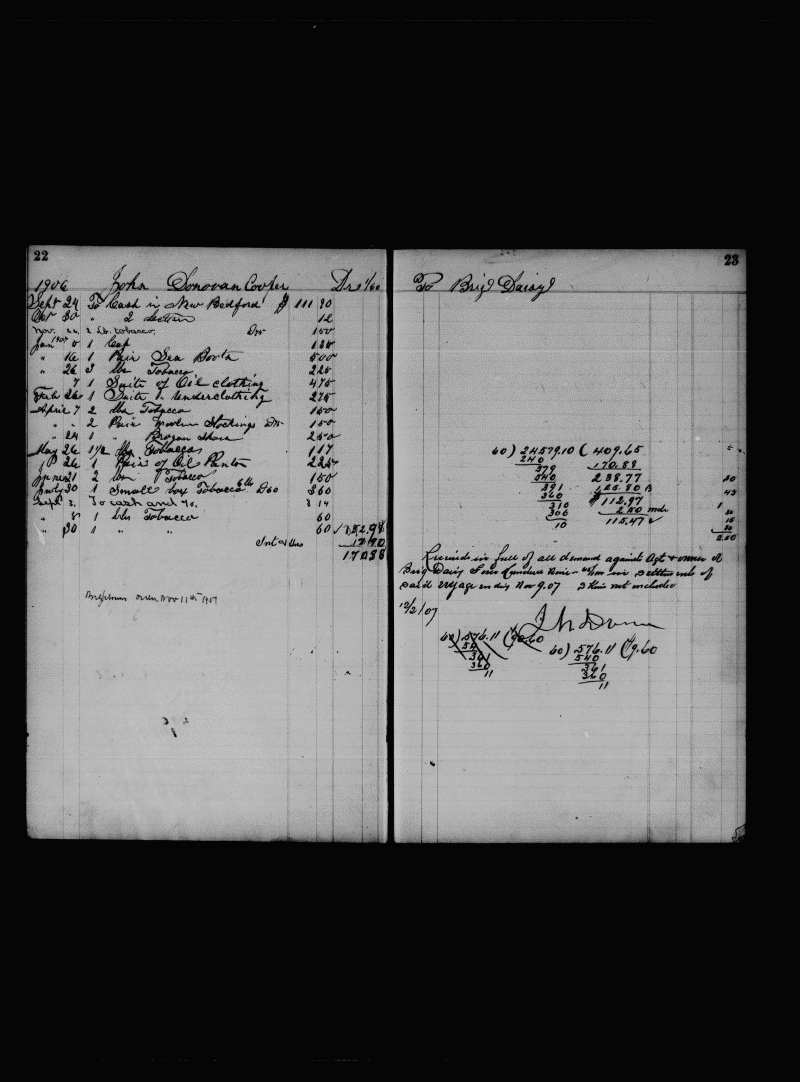 22
1906 John Donovan Cooper Dr 1/60
Sept 24 To Cash in New Bedford $ 111 90
Oct 30 " 2 12
Nov. 24, 2 Lb. tobacco 150
Jan 1907 1 Cap
" 16 1 Pair Sea Boots 500
" 26 3 lbs Tobacco 225
7 1 Suite of Oil clothing 475
Feb 26 1 Suite Underclothing 275
April 7 2 lbs Tobacco 150
" " 2 Pair Stockings 150
" 24 1 " Brogan Shoes 250
May 26 1 1/2 lbs Tobacco 117
" 26 1 Pair of Oil Pants 225
June 21 2 lbs Tobacco 150
July 30 1 Small box Tobacco 6 lbs 360
Sept 3. To cash 3 14
" 8 1 lbs Tobacco 60
" 30 1 " " 60 152.98
Int & Ins
170 88
order Nov 11th 1907
23
To Brig Daisy
60 ) 24579.10 ( 409.65
240 170.88
579 238.77
540 125.80
391 $ 112.97
360 2 50
310 115.47
300
10
2.50
Received in full of all demand against Agt & owner of
Brig Daisy Four Hundred Nine in settlement of
said voyage ending Nov 9.07 not included
12/2/07
60 ) 576.11 ( 9.60
54
361
360
11
60 ) 576.11 ( 9.60
540
361
360
11